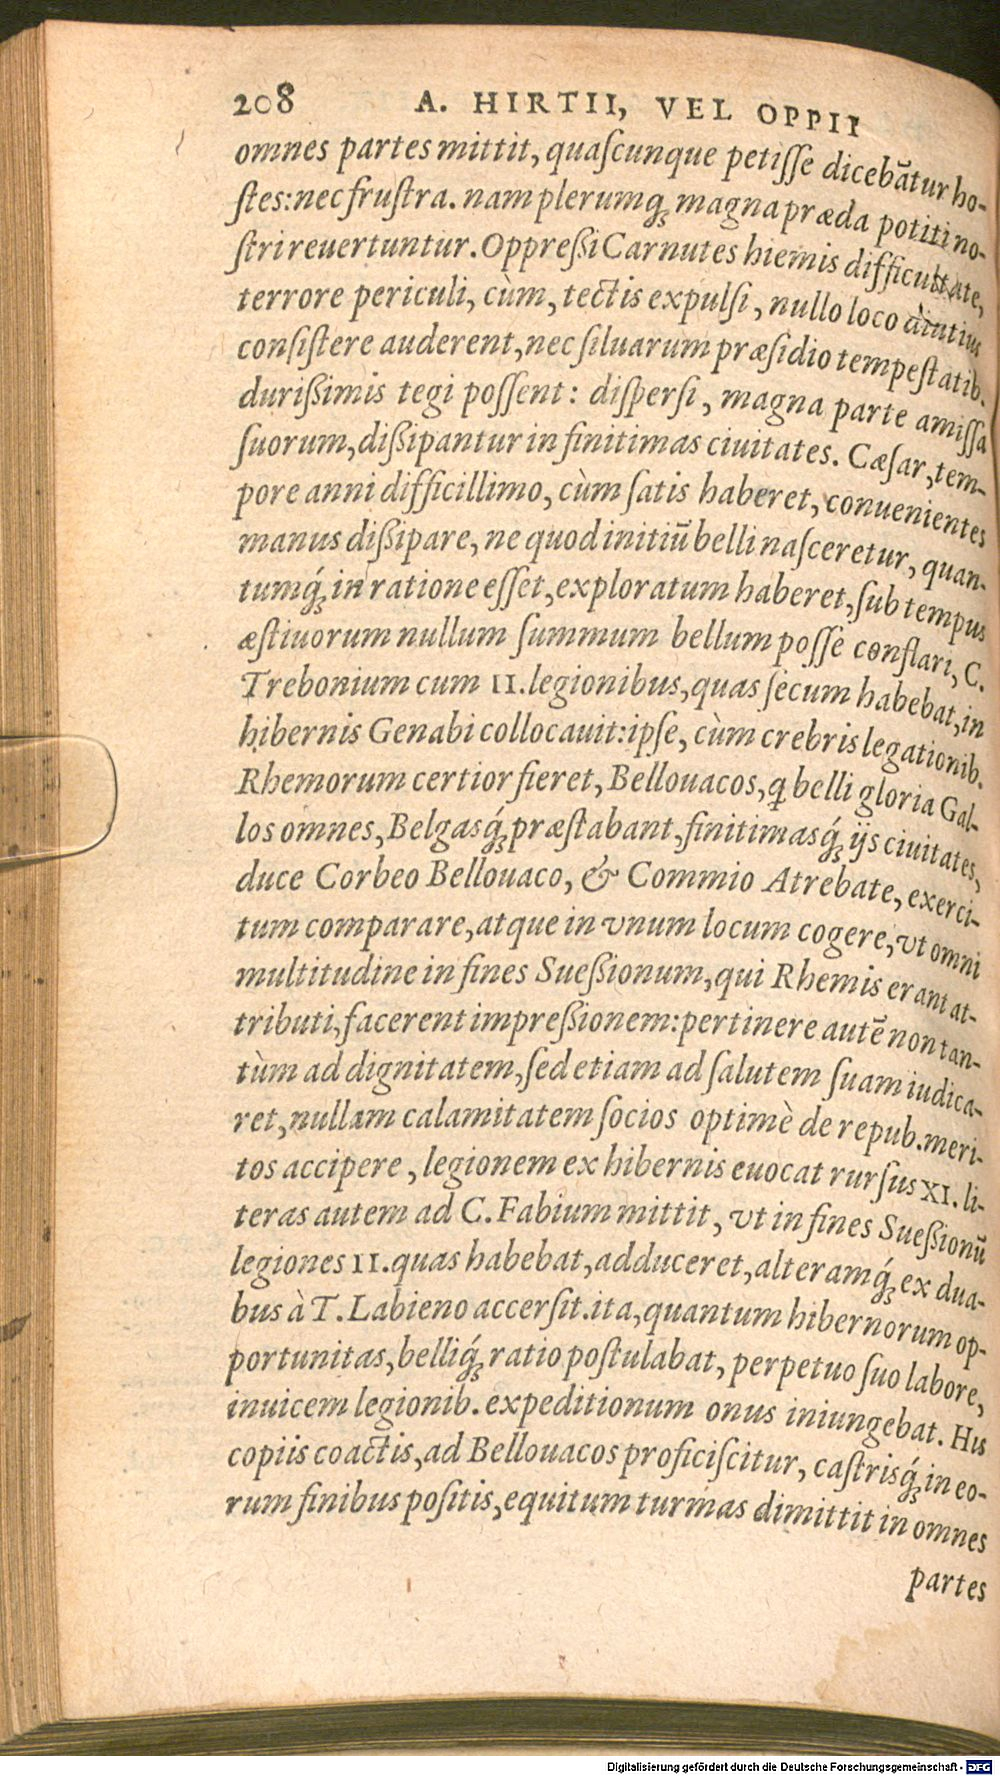 208 A. HIRTII, VEL OPPII
omnes partes mittit, quaſcunque petiſſe dicebātur ho-
ſtes: nec fruſtra. nam plerumq; magna præda potiti no-
ſtri reuertuntur. Oppreßi Carnutes hiemis difficultate,
terrore periculi, cùm, tectis expulſi, nullo loco diutius
conſiſtere auderent, nec ſiluarum præſidio tempeſtatib.
durißimis tegi poſſent: diſperſi, magna parte amiſſa
ſuorum, dißipantur in finitimas ciuitates. Cæſar, tem-
pore anni difficillimo, cùm ſatis haberet, conuenientes
manus dißipare, ne quod initiū belli naſceretur, quan-
tumq́; in ratione eſſet, exploratum haberet, ſub tempus
æſtiuorum nullum ſummum bellum poſſe conflari, C.
Trebonium cum II. legionibus, quas ſecum habebat, in
hibernis Genabi collocauit: ipſe, cùm crebris legationib.
Rhemorum certior fieret, Bellouacos, q belli gloria Gal-
los omnes, Belgasq́; præſtabant, finitimasq́; ijs ciuitates,
duce Corbeo Bellouaco, & Commio Atrebate, exerci-
tum comparare, atque in vnum locum cogere, vt omni
multitudine in fines Sueßionum, qui Rhemis erant at-
tributi, facerent impreßionem: pertinere autē non tan-
tùm ad dignitatem, ſed etiam ad ſalutem ſuam iudica-
ret, nullam calamitatem ſocios optimè de repub. meri-
tos accipere, legionem ex hibernis euocat rurſus XI. li-
teras autem ad C. Fabium mittit, vt in fines Sueßionū
legiones II. quas habebat, adduceret, alteramq́; ex dua-
bus à T. Labieno accerſit. ita, quantum hibernorum op-
portunitas, belliq́; ratio poſtulabat, perpetuo ſuo labore,
inuicem legionib. expeditionum onus iniungebat. His
copiis coactis, ad Bellouacos proficiſcitur, caſtrisq́; in eo-
rum finibus poſitis, equitum turmas dimittit in omnes
partes
Digitalisierung gefördert durch die Deutsche Forschungsgemeinschaft - DFG